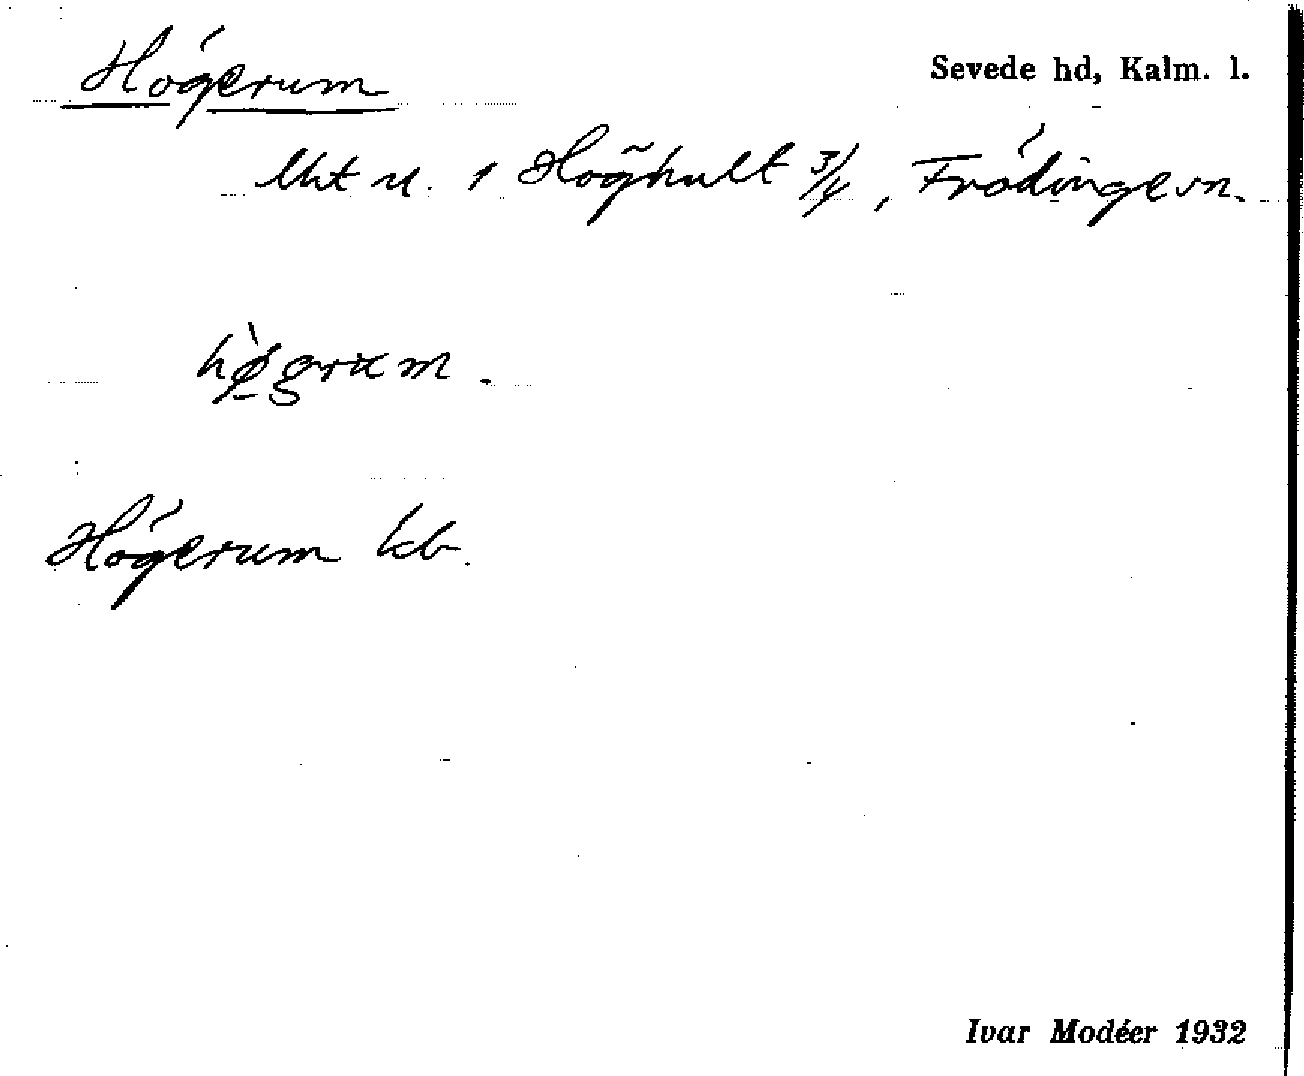 Högerum
Sevede hd, Kalm. l.
lht u. 1 Höghult 3/4, Frödinge sn.
hø̀grum.
Högerum kb.
Ivar Modéer 1932